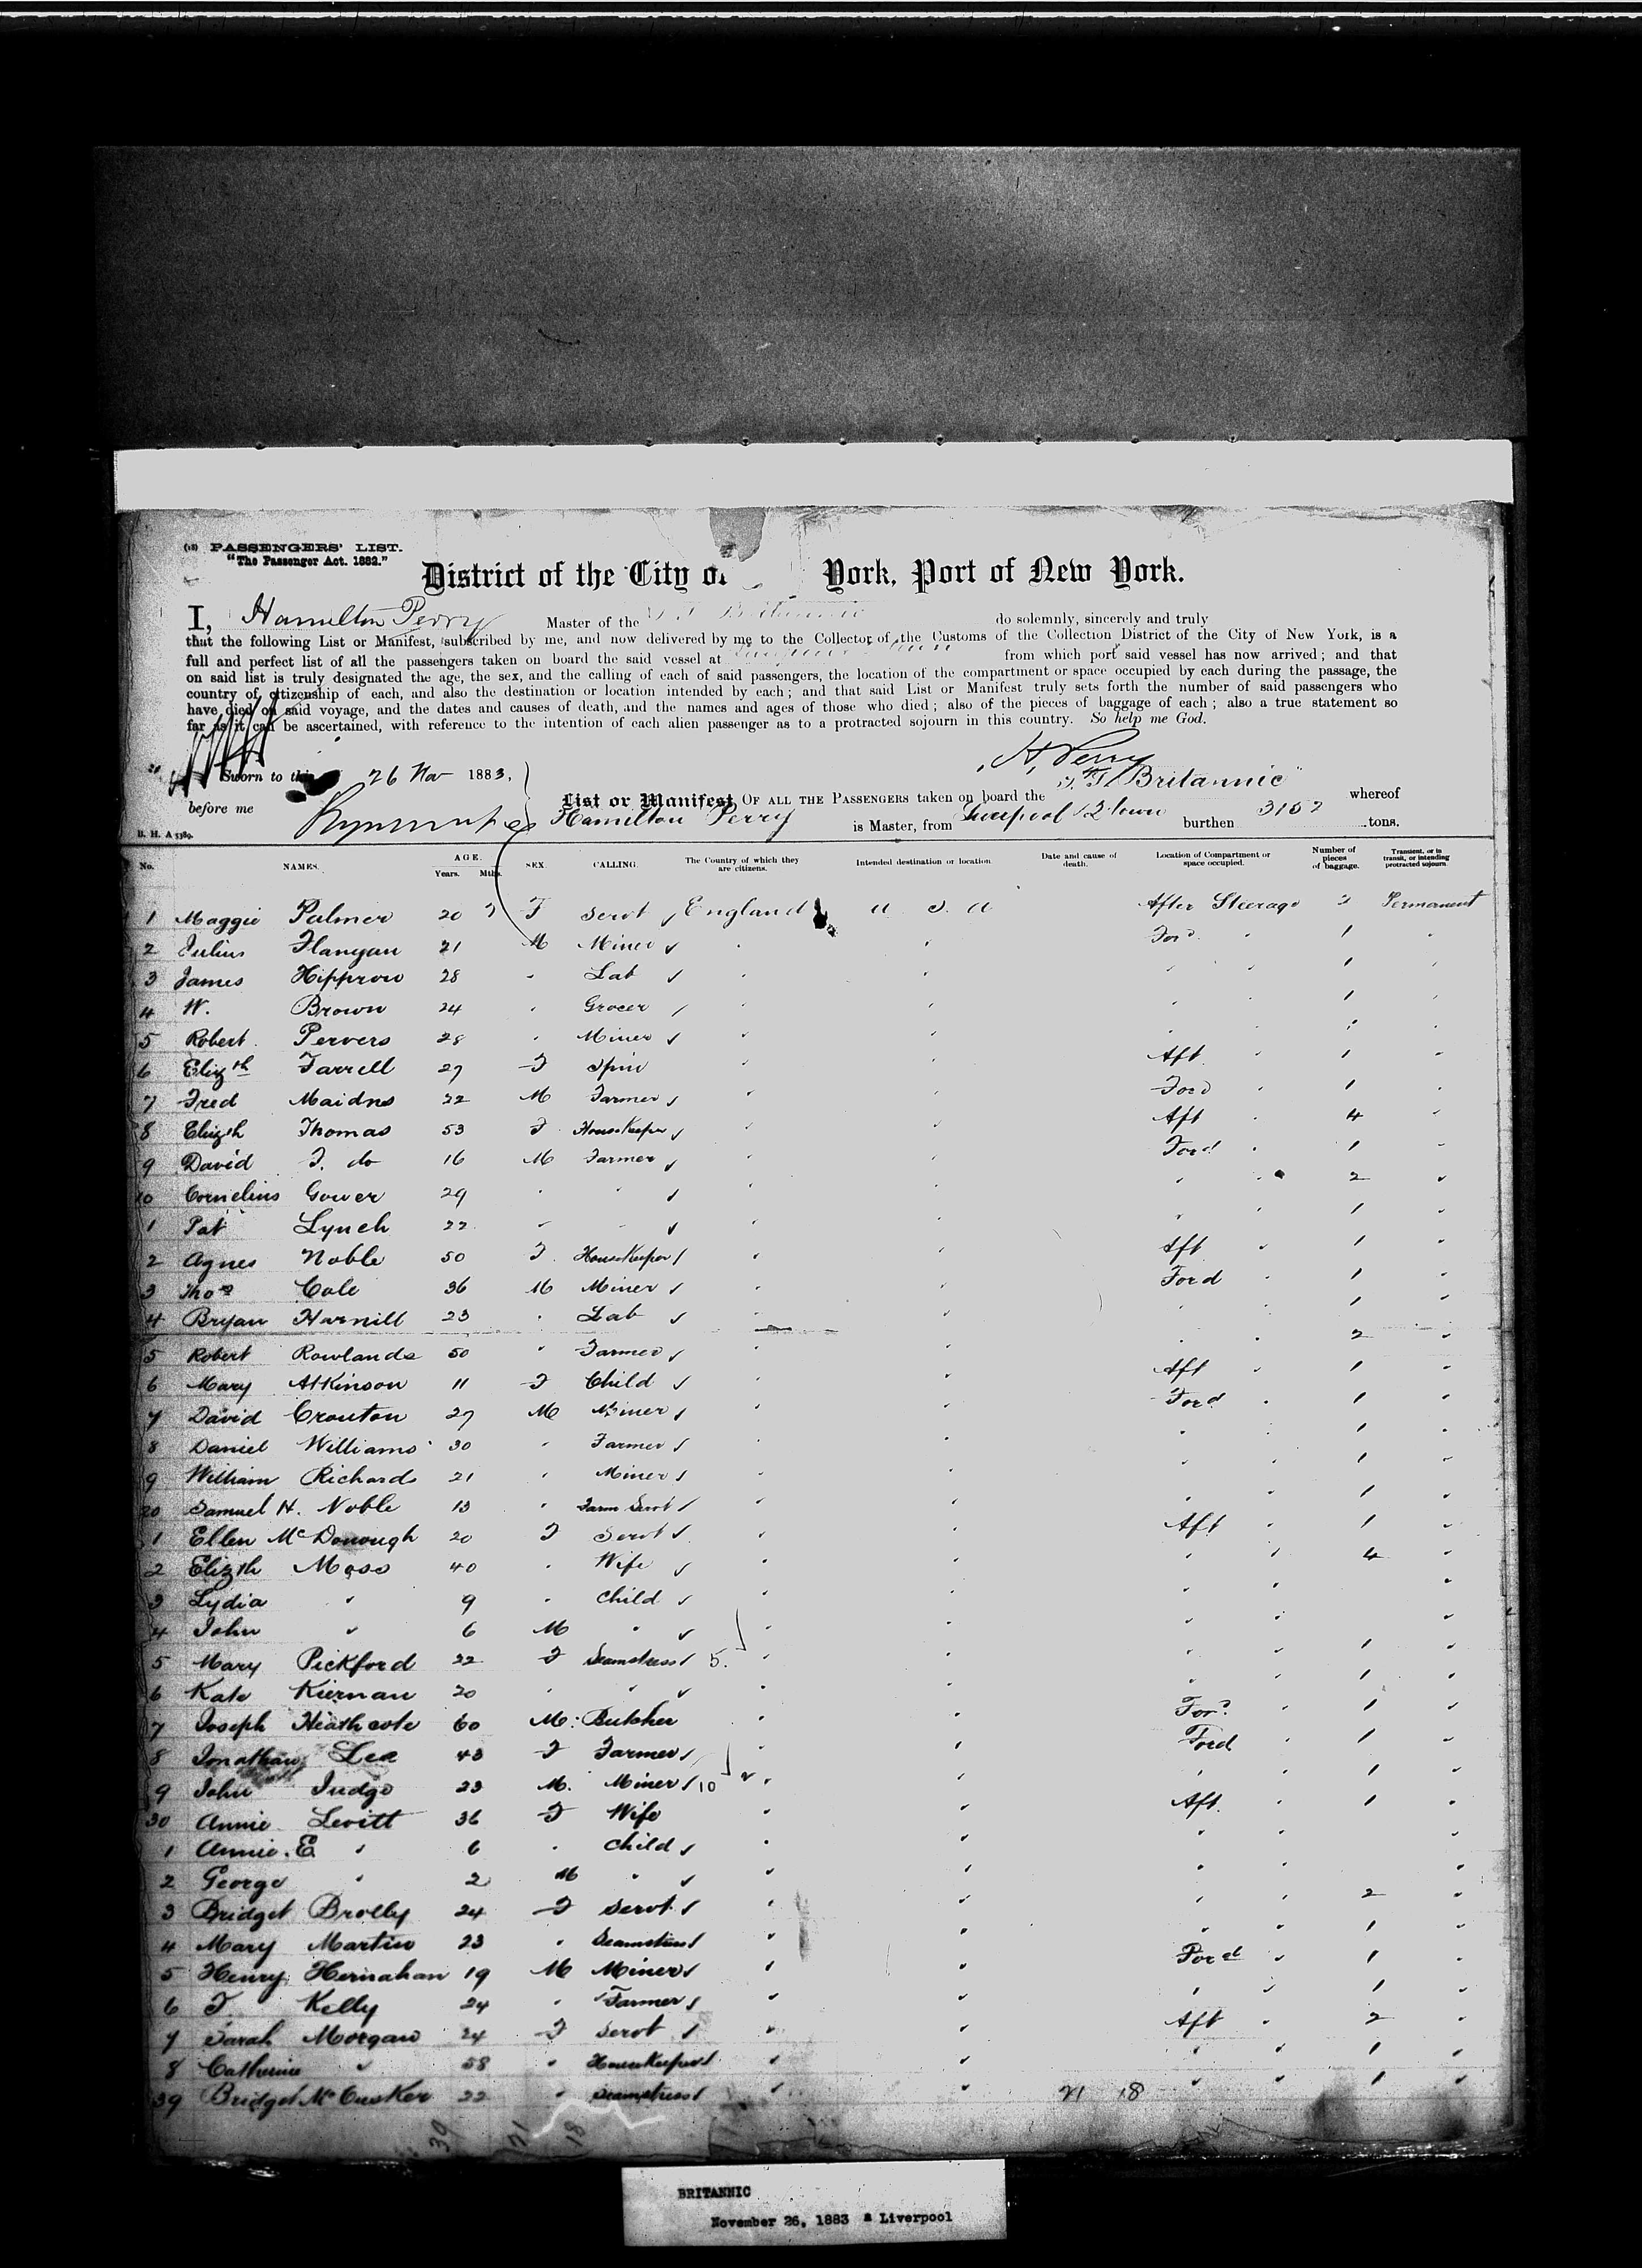 (18) PASSENGERS' LIST.
"The Passenger Act. 1882."
District of the City of York, Port of New York.
I, Hamilton Perry Master of the S.S. Britannic do solemnly, sincerely and truly
that the following List or Manifest, subscribed by me, and now delivered by me to the Collector of the Customs of the Collection District of the City of New York, is a
full and perfect list of all the passengers taken on board the said vessel at from which port said vessel has now arrived; and that
on said list is truly designated the age, the sex, and the calling of each of said passengers, the location of the compartment or space occupied by each during the passage, the
country of citizenship of each, and also the destination or location intended by each; and that said List or Manifest truly sets forth the number of said passengers who
have died on said voyage, and the dates and causes of death, and the names and ages of those who died; also of the pieces of baggage of each; also a true statement so
far as it can be ascertained, with reference to the intention of each alien passenger as to a protracted sojourn in this country. So help me God.
H. Perry
Sworn to this 26 Nov 1883,
before me
List or Manifest OF ALL THE PASSENGERS taken on board the S.S. Britannic whereof
Hamilton Perry is Master, from Liverpool & Q'town burthen 3152 tons.
B. H. A 5389.
No. NAMES. AGE. Years. Mths. SEX. CALLING. The Country of which they are citizens. Intended destination or location. Date and cause of death. Location of Compartment or space occupied. Number of pieces of baggage. Transient, or in transit, or intending protracted sojourn.
1 Maggie Palmer 20 F Servt England U S A After Steerage 2 Permanent
2 Julius Flanyan 21 M Miner " " Ford " 1 "
3 James Hipprow 28 " Lab " " " " 1 "
4 W. Brown 24 " Grocer " " " " 1 "
5 Robert Pervers 28 " Miner " " " " 1 "
6 Elizth Farrell 27 F Spin " " Aft " 1 "
7 Fred Maidns 22 M Farmer " " Ford " 1 "
8 Elizth Thomas 53 F HouseKeeper " " Aft " 4 "
9 David T. do 16 M Farmer " " Ford " 1 "
10 Cornelius Gower 29 " " " " " " 2 "
1 Pat Lynch 22 " " " " " " 1 "
2 Agnes Noble 50 F HouseKeeper " " Aft " 1 "
3 Thos Cole 36 M Miner " " Ford " 1 "
4 Bryan Harnill 23 " Lab " " " " 1 "
5 Robert Rowlands 50 " Farmer " " " " 2 "
6 Mary Atkinson 11 F Child " " Aft " 1 "
7 David Crouton 27 M Miner " " Ford " 1 "
8 Daniel Williams 30 " Farmer " " " " 1 "
9 William Richards 21 " Miner " " " " 1 "
20 Samuel H. Noble 13 " Farm Servt " " " " 1 "
1 Ellen McDonough 20 F Servt " " Aft " 1 "
2 Elizth Moss 40 " Wife " " " " 4 "
3 Lydia " 9 " Child " " " " "
4 John " 6 M " " " " " "
5 Mary Pickford 22 F Seamstress 5. " " " " 1 "
6 Kate Kiernan 20 " " " " " " 1 "
7 Joseph Heathcote 60 M Butcher " " Ford " 1 "
8 Jonathan Lea 43 F Farmer " " Ford " 1 "
9 John Judge 23 M. Miner 10 " " " " 1 "
30 Annie Levitt 36 F Wife " " Aft " 1 "
1 Annie. E " 6 " Child " " " " "
2 George " 2 M " " " " " "
3 Bridget Brolly 24 F Servt " " " " 2 "
4 Mary Martin 23 " Seamstress " " " " 1 "
5 Henry Hernahan 19 M Miner " " Ford " 1 "
6 T. Kelly 24 " Farmer " " " " 1 "
7 Sarah Morgan 24 F Servt " " Aft " 2 "
8 Catherine " 58 " HouseKeeper " " " " 1 "
39 Bridget McCusker 22 " Seamstress " " 21 18 " " 1 "
39 21 18
BRITANNIC
November 26, 1883 Liverpool